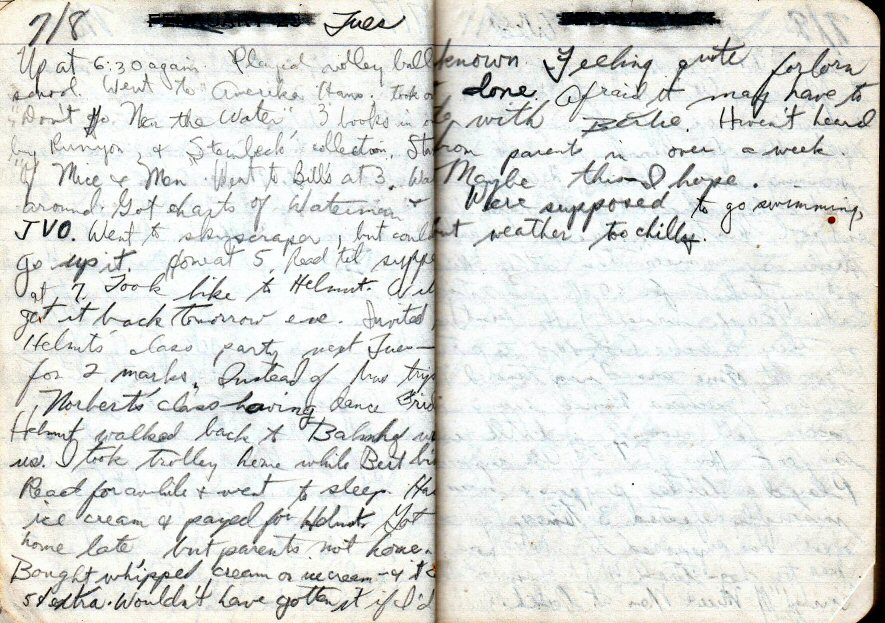 7/8 Tues
Up at 6:30 again. Played volley ball
school. Went to "Amerika Haus. Took o
"Don't Go Near the Water" 3 books in
by Runyon, & Steinbeck collection. Sta
"Of Mice & Men. Went to Bill's at 3. Wa
around. Got charts of Waterman &
JVO. Went to skyscraper, but could
go up it. Home at 5. Read 'til suppe
at 7. Took bike to Helmut. Will
get it back tomorrow eve. Invited
Helmuts class party next Tues—
for 2 marks. Instead of bus trip
Norberts class having dance Frid
Helmut walked back to Bahnhof w
us. I took trolley home while Bert
Read for awhile & went to sleep. Ha
ice cream & payed for Helmut. Got
home late but parents not home.
Bought whipped cream on ice cream — & it
5¢ extra. Wouldn't have gotten it if I'd
known. Feeling quite forlorn
lone. Afraid it may have to
with Bertie. Haven't heard
from parents in over a week
Maybe thurs I hope.
Were supposed to go swimming,
but weather too chilly.